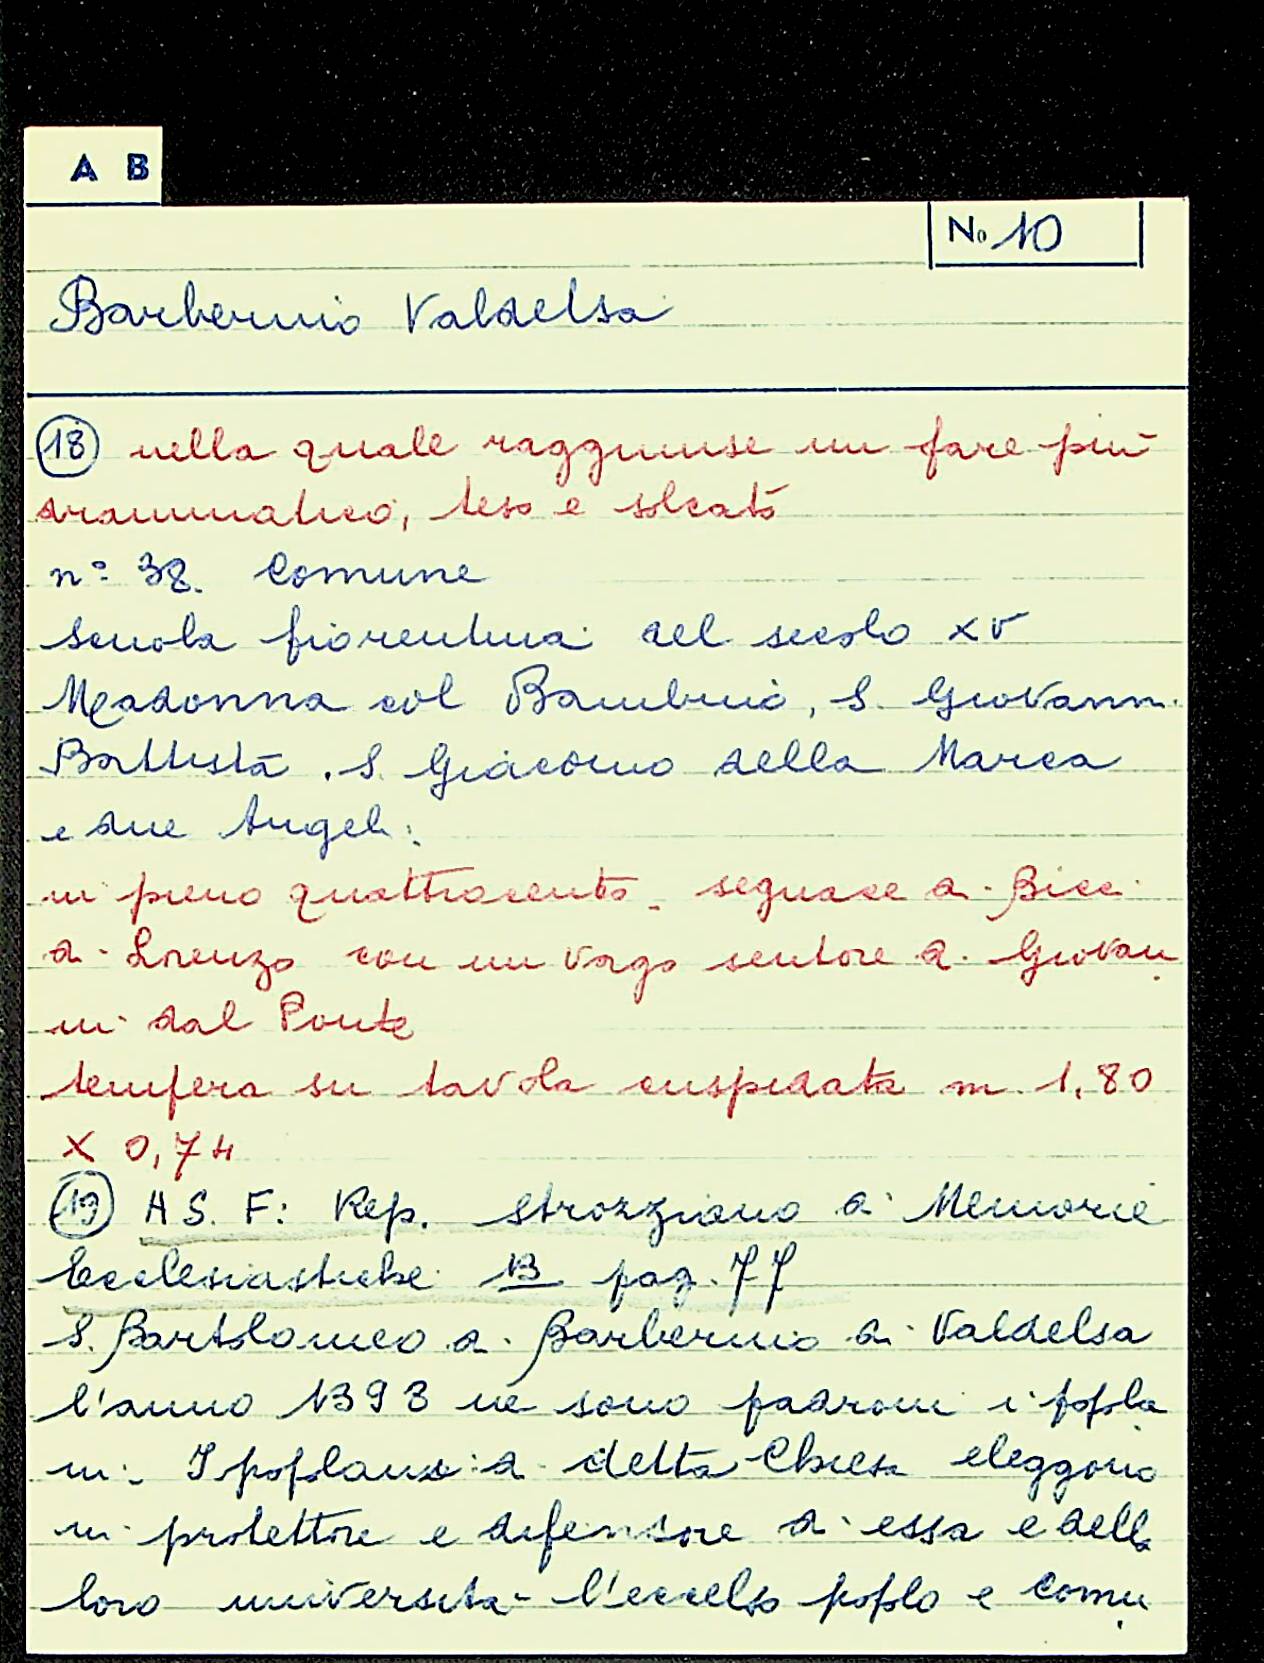 A B
No 10
Barberino Valdelsa
18 nella quale raggiunse un fare più
drammatico, teso e solcato
n° 38. Comune
Scuola fiorentina del secolo XV
Madonna col Bambino, S. Giovanni
Battista, S. Giacomo della Marca
e due Angeli:
in pieno quattrocento. seguace di Bicci
di Lorenzo con un vago sentore di Giovan
ni dal Ponte
tempera su tavola cuspidata m. 1,80
X 0,74
19 A S. F: Rep. Strozziano di Memorie
Ecclesiastiche B pag. 77
S. Bartolomeo a Barberino di Valdelsa
l'anno 1393 ne sono padroni i popola
ni. I popolani di detta Chiesa eleggono
in protettore e difensore di essa e della
loro università l'eccelso popolo e comu